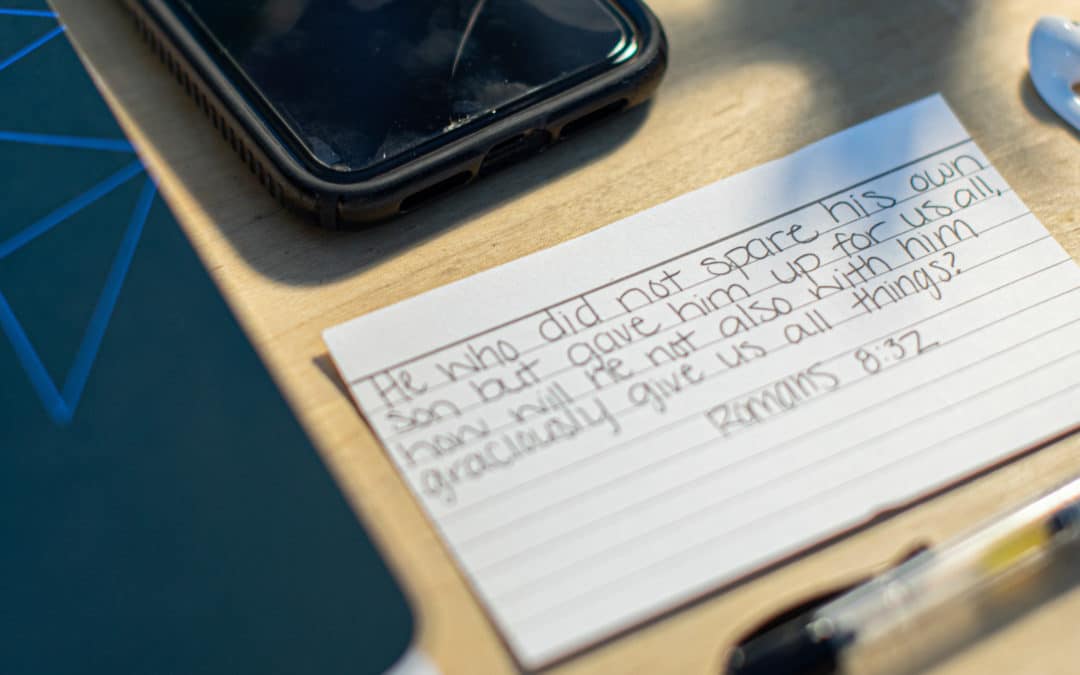 He who did not spare his own
son but gave him up for us all,
how will he not also with him
graciously give us all things?
Romans 8:32